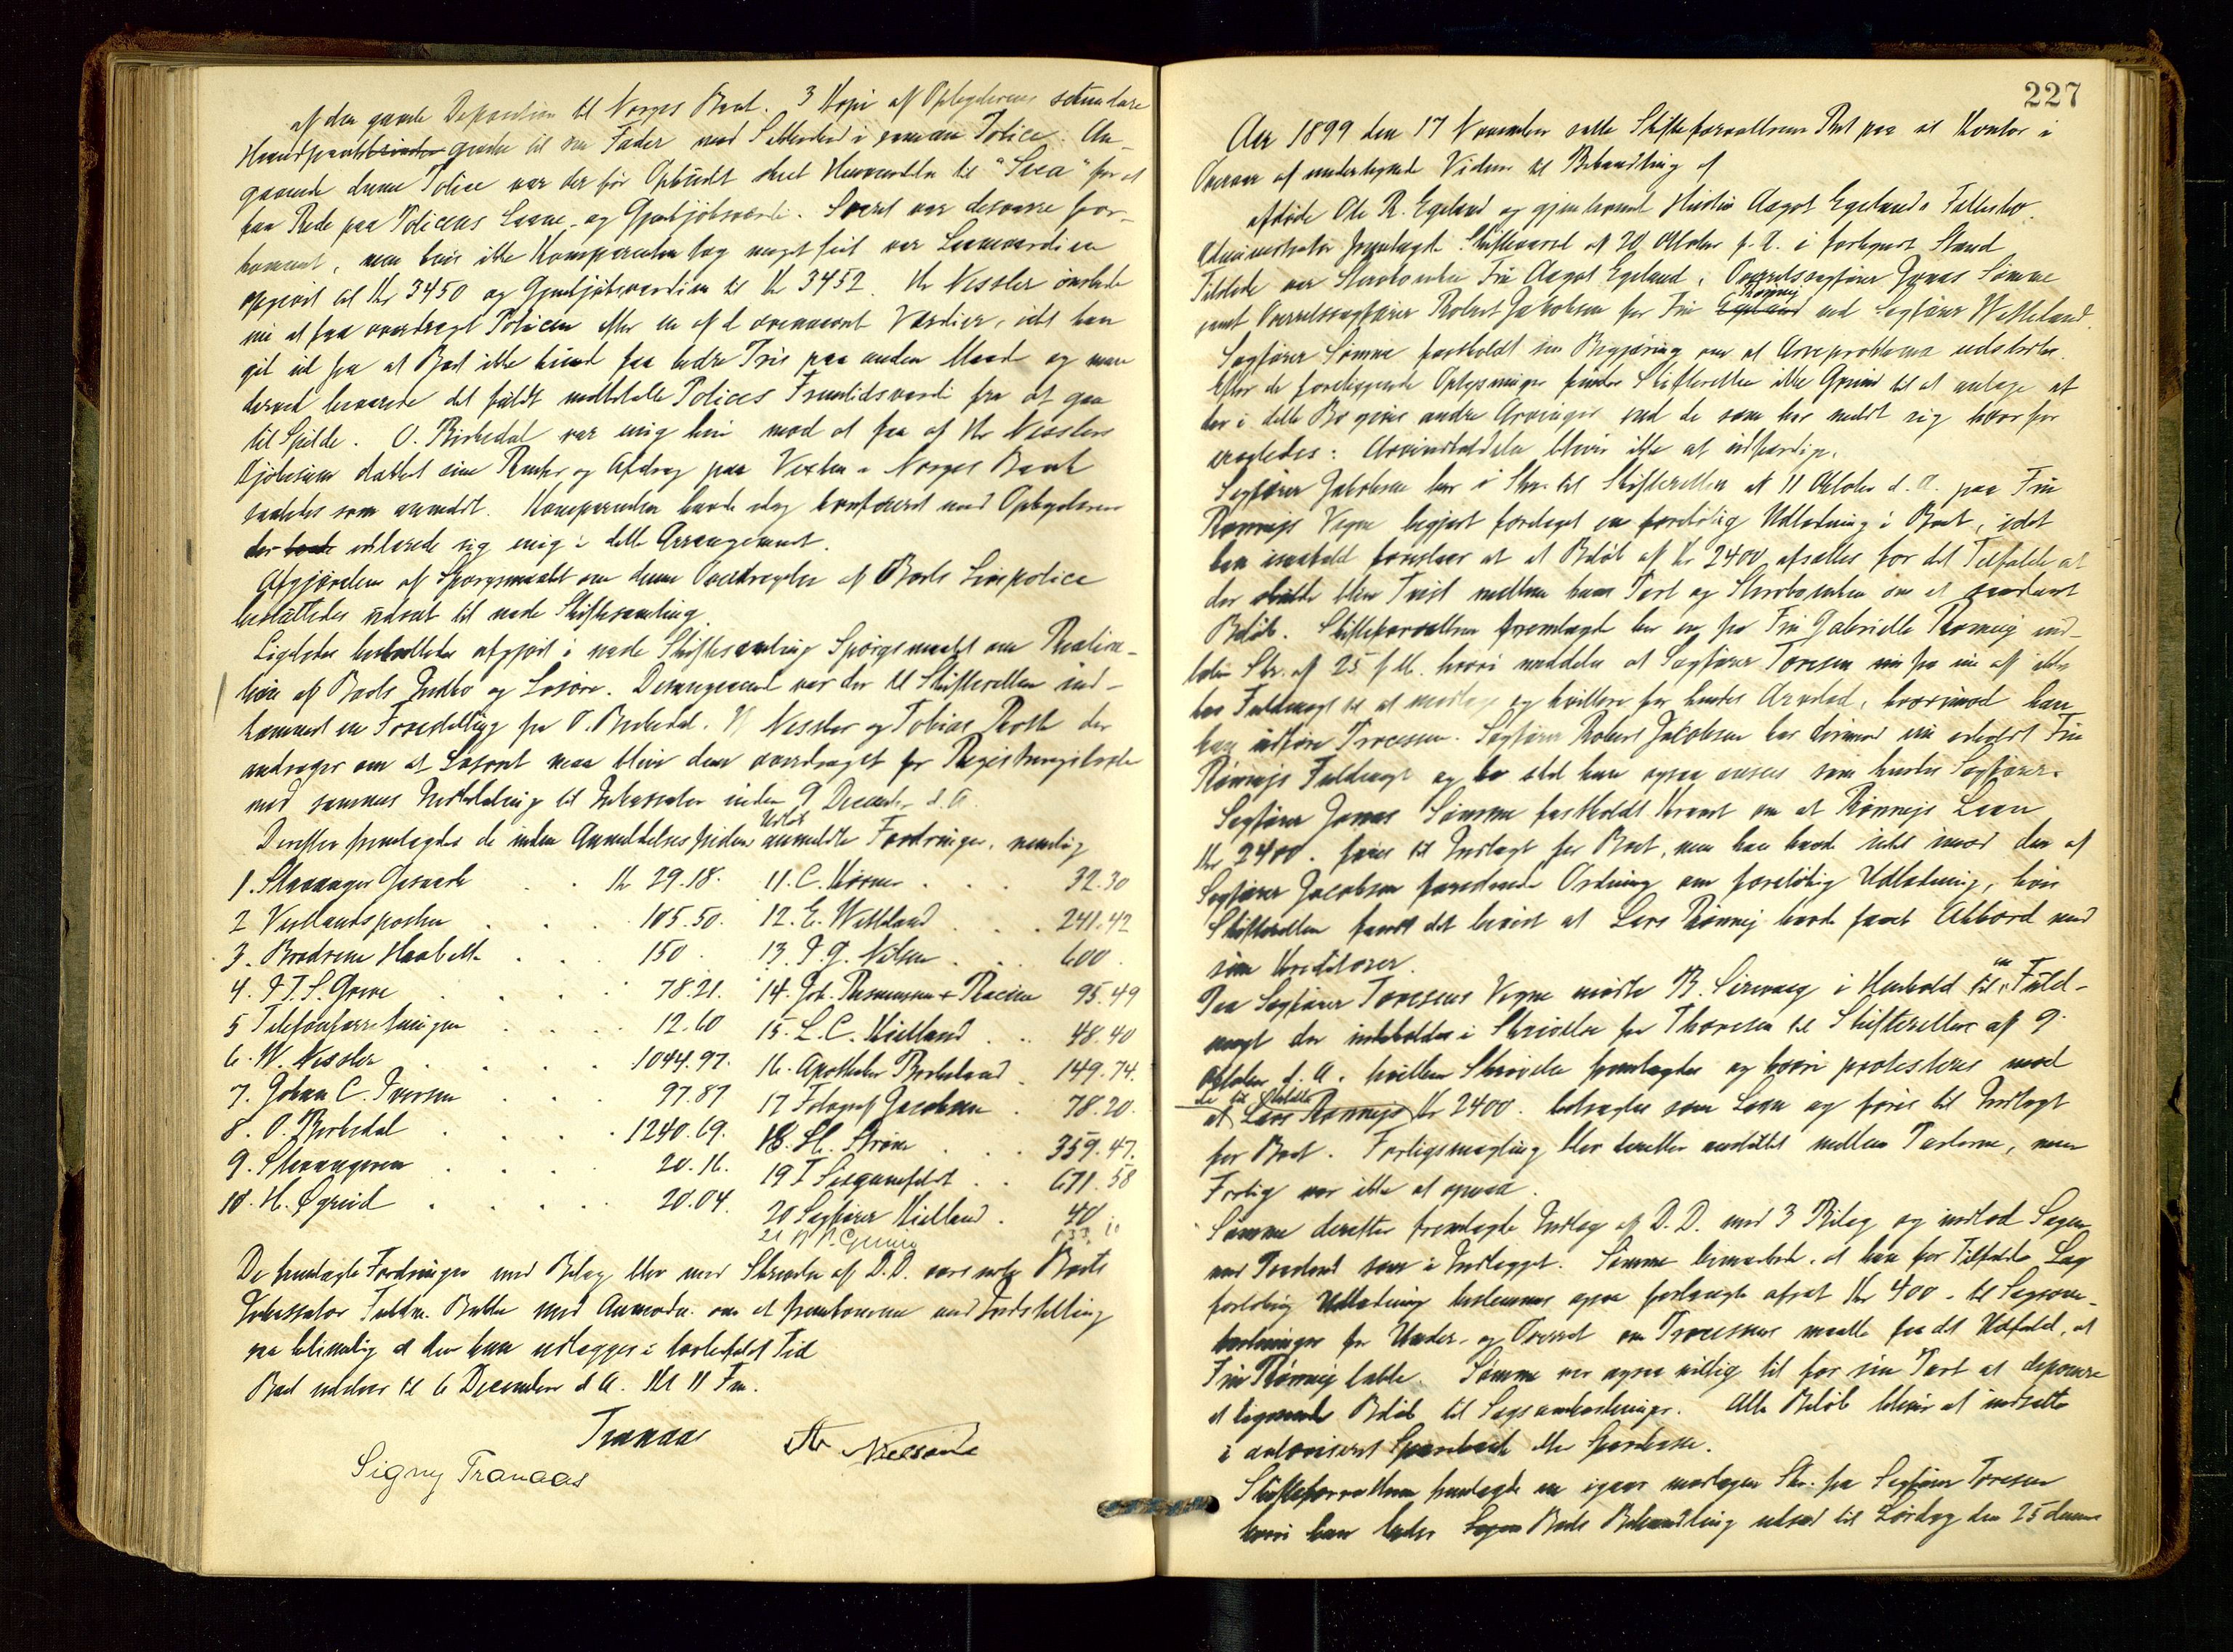 af den gamle til Norges Bank. 3 Kopi af Opbyderens sekundære
Haandpant til sin Fader med i samme Police. An-
gaaende denne Police var der før Opbudet skeet Henvendelse til "Svea" for at
faa Rede paa Policens Laane- og Gjenkjøbsværdi. Svaret var desværre for-
kommet, men hvis ikke Komparenten tog meget feil var Laaneværdien
opgivet til Kr 3450 og Gjenkjøbsværdien til Kr 3452. Hr Nessler ønskede
nu at faa overdraget Policen efter en af de Værdier, idet han
gik ud fra at Boet ikke kunde faa bedre Pris paa anden Maade og man
derved bevarede det fuldt Polices Fremtidsværdi fra at gaa
til Spilde. O. Birkedal var enig heri mod at faa af Hr Nesslers
Kjøbesum dækket sine Renter og Afdrag paa Vexlen i Norges Bank
saaledes som anmeldt. Komparenten havde idag konfereret med Opbyderen
der erklærede sig enig i dette Arrangement.
Afgjørelsen af Spørgsmaalet om denne Overdragelse af Boets Livspolice
besluttedes udsat til næste Skiftesamling.
Ligeledes besluttedes afgjort i næste Skiftesamling Spørgsmaalet om Realisa-
tion af Boets Indbo og Løsøre. Desangaaende var der til Skifteretten ind-
kommet en Forestilling fra O. Birkedal, W Nessler og Tobias Roth der
andrager om at Løsøret maa blive dem overdraget for Registreringsværdi
mod sammes Indbetaling til Inkassator inden 9 December d. A.
Derefter fremlagdes de inden Anmeldelsesfristens Udløb anmeldte Fordringer, nemlig
1. Stavanger Gasværk Kr 29.18. 11. C. Kørner 32.30
2 Vestlandsposten 105.50. 12. E. Wetteland 241.42
3. Brødrene Haabeth 150. 13. P. G. Nilsen 600.
4. P. T. S. Greve 78.21. 14. Joh. Rasmussen & Racine 95.49
5 Telefonforretningen 12.60 15. L. C. Kielland 48.40
6. W. Nessler 1044.97. 16. Apotheker Birkeland 149.74.
7. Johan C. Iversen 97.87 17 Fotograf Jacobsen 78.20.
8. O. Birkedal 1240.69. 18. St. Strøm 359.47.
9. Stavangeren 20.16. 19 T 671.58
10. H. Øgreid 20.04. 20 Sagfører Kielland 40.
21
De fremlagte Fordringer med Bilag blev med Skrivelse af D. D. oversendt Boets
Inkassator Fuldm. Bakke med Anmodn. om at fremkomme med Indstilling
saa betimelig at den kan udlægges i lovbefalet Tid
Boet udsættes til 6 December d A. Kl 11 Fm.
Tranaas
Signy Tranaas
227
Aar 1899 den 17 November satte Skifteforvalteren Ret paa sit Kontor i
Overvær af undertegnede Vidner til Behandling af
afdøde Ole R. Egeland og gjenlevende Hustru Aagot Egelands Fællesbo.
Administrator fremlagde Skiftevarsel af 20 Oktober f. A. i forkyndt Stand
Tilstede var Stervboenken Fru Aagot Egeland, Overretssagfører Jonas Sømme
samt Overretssagfører Robert Jakobsen for Fru Rønnej ved Sagfører Wetteland.
Sagfører Sømme fastholdt sin Begjæring om at Arveproklama udstedes.
Efter de foreliggende Oplysninger finder Skifteretten ikke Grund til at antage at
der i dette Bo gives andre Arvinger end de som har meldt sig hvorfor
eragtedes: Arveindkaldelse bliver ikke at udfærdige.
Sagfører Jakobsen har i Skr. til Skifteretten af 11 Oktober d. A. paa Fru
Rønnejs Vegne begjært foretaget en foreløbig Udlodning i Boet, idet
han foreslaar at et Beløb af Kr 2400 afsættes for det Tilfælde at
der skulde blive Tvist mellem hans Part og Stervboenken om et saadant
Beløb. Skifteforvalteren fremlagde her en fra Fru Gabrielle Rønnej ind-
løben Skr. af 25 f. M. hvori meddeles at Sagfører Toresen nu fra nu af ikke
har Fuldmagt til at modtage og kvittere for hendes Arvelod, hvorimod han
kan udføre Processen. Sagfører Robert Jakobsen har derimod nu erholdt Fru
Rønnejs Fuldmagt og skal han ogsaa ansees som hendes Sagfører.
Sagfører Jonas Sømme fastholdt Kravet om at Rønnejs Laan
Kr 2400. føres til Indtægt for Boet, men han havde intet imod den af
Sagfører Jacobsen foreslaaede Ordning om foreløbig Udlodning, hvis
Skifteretten fandt det bevist at Lars Rønnej havde faaet Akkord med
sine Kreditorer.
Paa Sagfører Toresens Vegne mødte B. Sirevaag i Henhold til en Fuld-
magt der indeholdes i Skrivelse fra Thoresen til Skifteretten af 9.
Oktober d. A. hvilken Skrivelse fremlagdes og hvori protesteres mod
at de til Lars Rønnej Kr 2400. betragtes som Laan og føres til Indtægt
for Boet. Forligsmægling blev derefter anstillet mellem Parterne, men
Forlig var ikke at opnaa.
Sømme derefter fremlagde Indlæg af D. D. med 3 Bilag og indlod Sagen
med Paastand som i Indlægget. Sømme bemærkede, at han for Tilfælde Lag
foreløbig Udlodning bestemmes ogsaa forlangte afsat Kr 400 - til Sagsom-
kostninger for Under- og Overret om Processen maatte faa det Udfald, at
Fru Rønnej tabte. Sømme var ogsaa villig til for sin Part at deponere
et lignende Beløb til Sagsomkostninger. Alle Beløb bliver at indsætte
i autoriseret Sparebank eller Sparekasse.
Skifteforvalteren fremlagde en igaar modtagen Skr. fra Sagfører Toresen
hvori han beder Boets Behandling udsat til Lørdag den 25 dennes